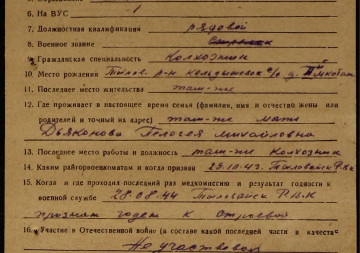 6. На ВУС - 1
7. Должностная квалификация рядовой
8. Военное звание
9. Гражданская специальность Колхозник
10. Место рождения р-н с/о д.
11. Последнее место жительства там-же
12. Где проживает в настоящее время семья (фамилия, имя и отчество жены или
родителей и точный их адрес) там-же мать
Дьяконова Михайловна
13. Последнее место работы и должность там-же Колхозник
14. Каким райгорвоенкоматом и когда призван 43. РВК
15. Когда и где проходил последний раз медкомиссию и результат годности к
военной службе 28.08.44 РВК
признан годен к строевой
16. Участие в Отечественной войне (в составе какой последней части в качеств
Не участвовал